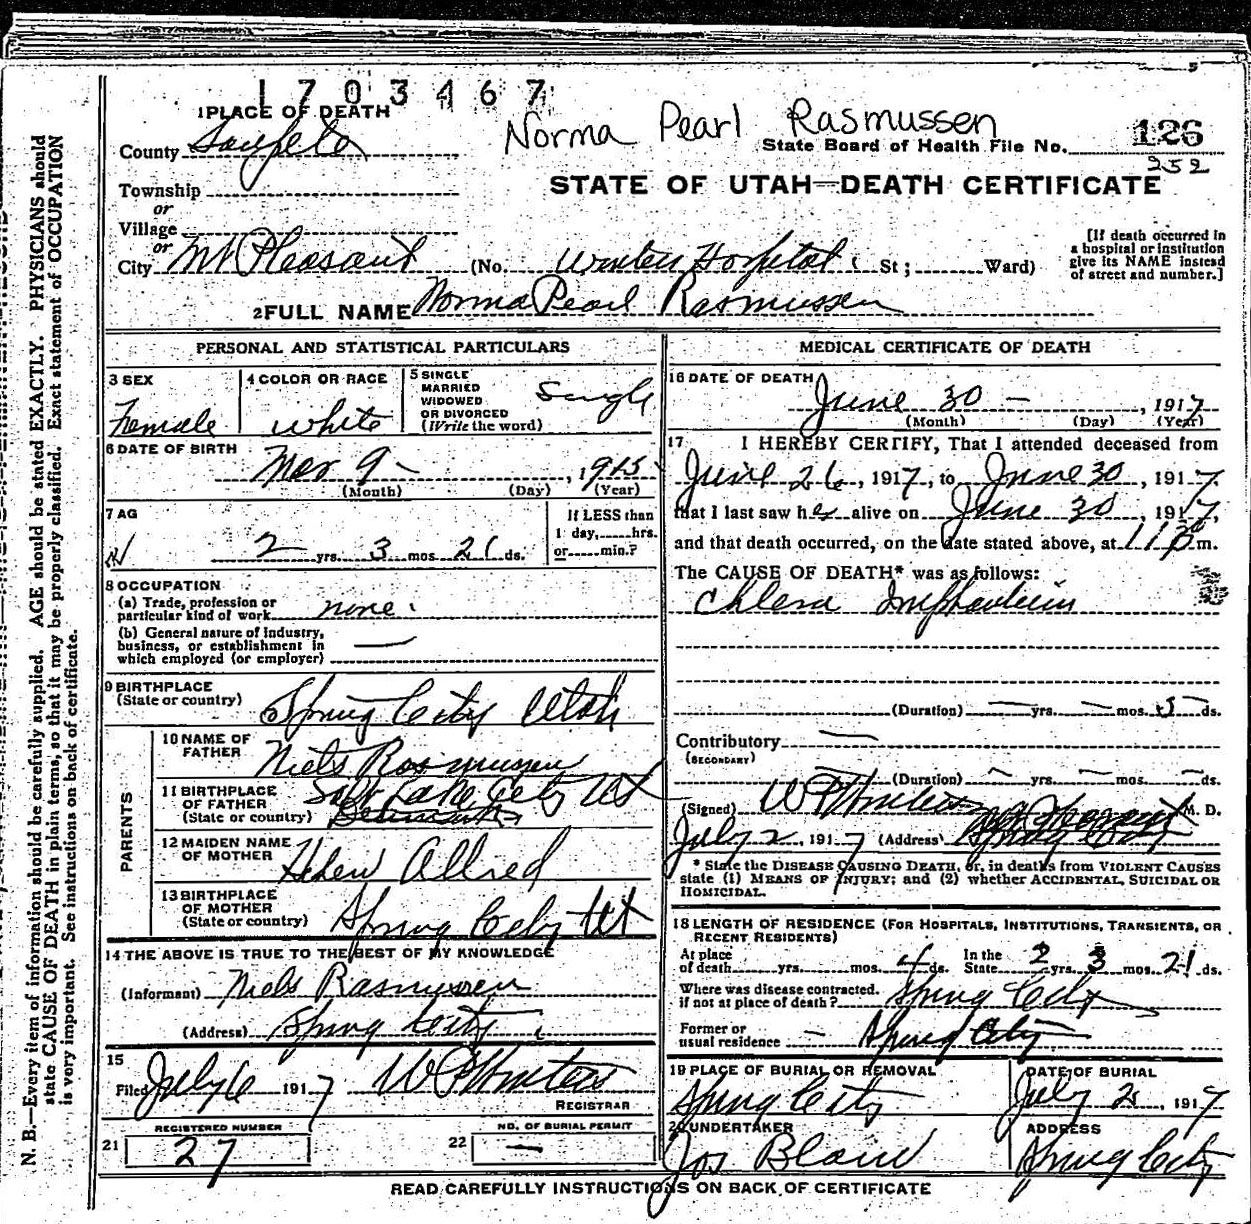 1703467
1 PLACE OF DEATH
Norma Pearl Rasmussen
County Sanpete
State Board of Health File No. 126
252
Township
or
Village
or
STATE OF UTAH—DEATH CERTIFICATE
City Mt Pleasant (No. Winters Hospital St; Ward)
[If death occurred in
a hospital or institution
give its NAME instead
of street and number.]
2 FULL NAME Norma Pearl Rasmussen
PERSONAL AND STATISTICAL PARTICULARS
3 SEX
Female
4 COLOR OR RACE
White
5 SINGLE
MARRIED
WIDOWED
OR DIVORCED
(Write the word)
Single
6 DATE OF BIRTH
Mar 9 - , 1915
(Month) (Day) (Year)
7 AG
2 yrs. 3 mos. 21 ds.
If LESS than
1 day, hrs.
or min.?
8 OCCUPATION
(a) Trade, profession or
particular kind of work none.
(b) General nature of industry,
business, or establishment in
which employed (or employer) —
9 BIRTHPLACE
(State or country) Spring City Utah
PARENTS
10 NAME OF
FATHER Niels Rasmussen
11 BIRTHPLACE
OF FATHER
(State or country) Salt Lake City Ut
12 MAIDEN NAME
OF MOTHER Helen Allred
13 BIRTHPLACE
OF MOTHER
(State or country) Spring City Ut
14 THE ABOVE IS TRUE TO THE BEST OF MY KNOWLEDGE
(Informant) Niels Rasmussen
(Address) Spring City
15
Filed July 6 1917 W P Winters
REGISTRAR
REGISTERED NUMBER
21 27
NO. OF BURIAL PERMIT
22 —
MEDICAL CERTIFICATE OF DEATH
16 DATE OF DEATH
June 30 - , 1917
(Month) (Day) (Year)
17 I HEREBY CERTIFY, That I attended deceased from
June 26, 1917, to June 30, 1917,
that I last saw her alive on June 30, 1917,
and that death occurred, on the date stated above, at 11 30 p m.
The CAUSE OF DEATH* was as follows:
Chlera
(Duration) — yrs. — mos. 5 ds.
Contributory —
(SECONDARY)
(Duration) — yrs. — mos. — ds.
(Signed) W P Winters M. D.
July 2, 1917 (Address) Mt Pleasant
Spring City
* State the DISEASE CAUSING DEATH, or, in deaths from VIOLENT CAUSES
state (1) MEANS OF INJURY; and (2) whether ACCIDENTAL, SUICIDAL OR
HOMICIDAL.
18 LENGTH OF RESIDENCE (FOR HOSPITALS, INSTITUTIONS, TRANSIENTS, OR
RECENT RESIDENTS)
At place
of death yrs. mos. 4 ds.
In the
State 2 yrs. 3 mos. 21 ds.
Where was disease contracted.
if not at place of death? Spring City
Former or
usual residence — Spring City
19 PLACE OF BURIAL OR REMOVAL
Spring City
DATE OF BURIAL
July 2, 1917
20 UNDERTAKER
Jos Blain
ADDRESS
Spring City
READ CAREFULLY INSTRUCTIONS ON BACK OF CERTIFICATE
N. B.—Every item of information should be carefully supplied. AGE should be stated EXACTLY. PHYSICIANS should
state CAUSE OF DEATH in plain terms, so that it may be properly classified. Exact statement of OCCUPATION
is very important. See instructions on back of certificate.